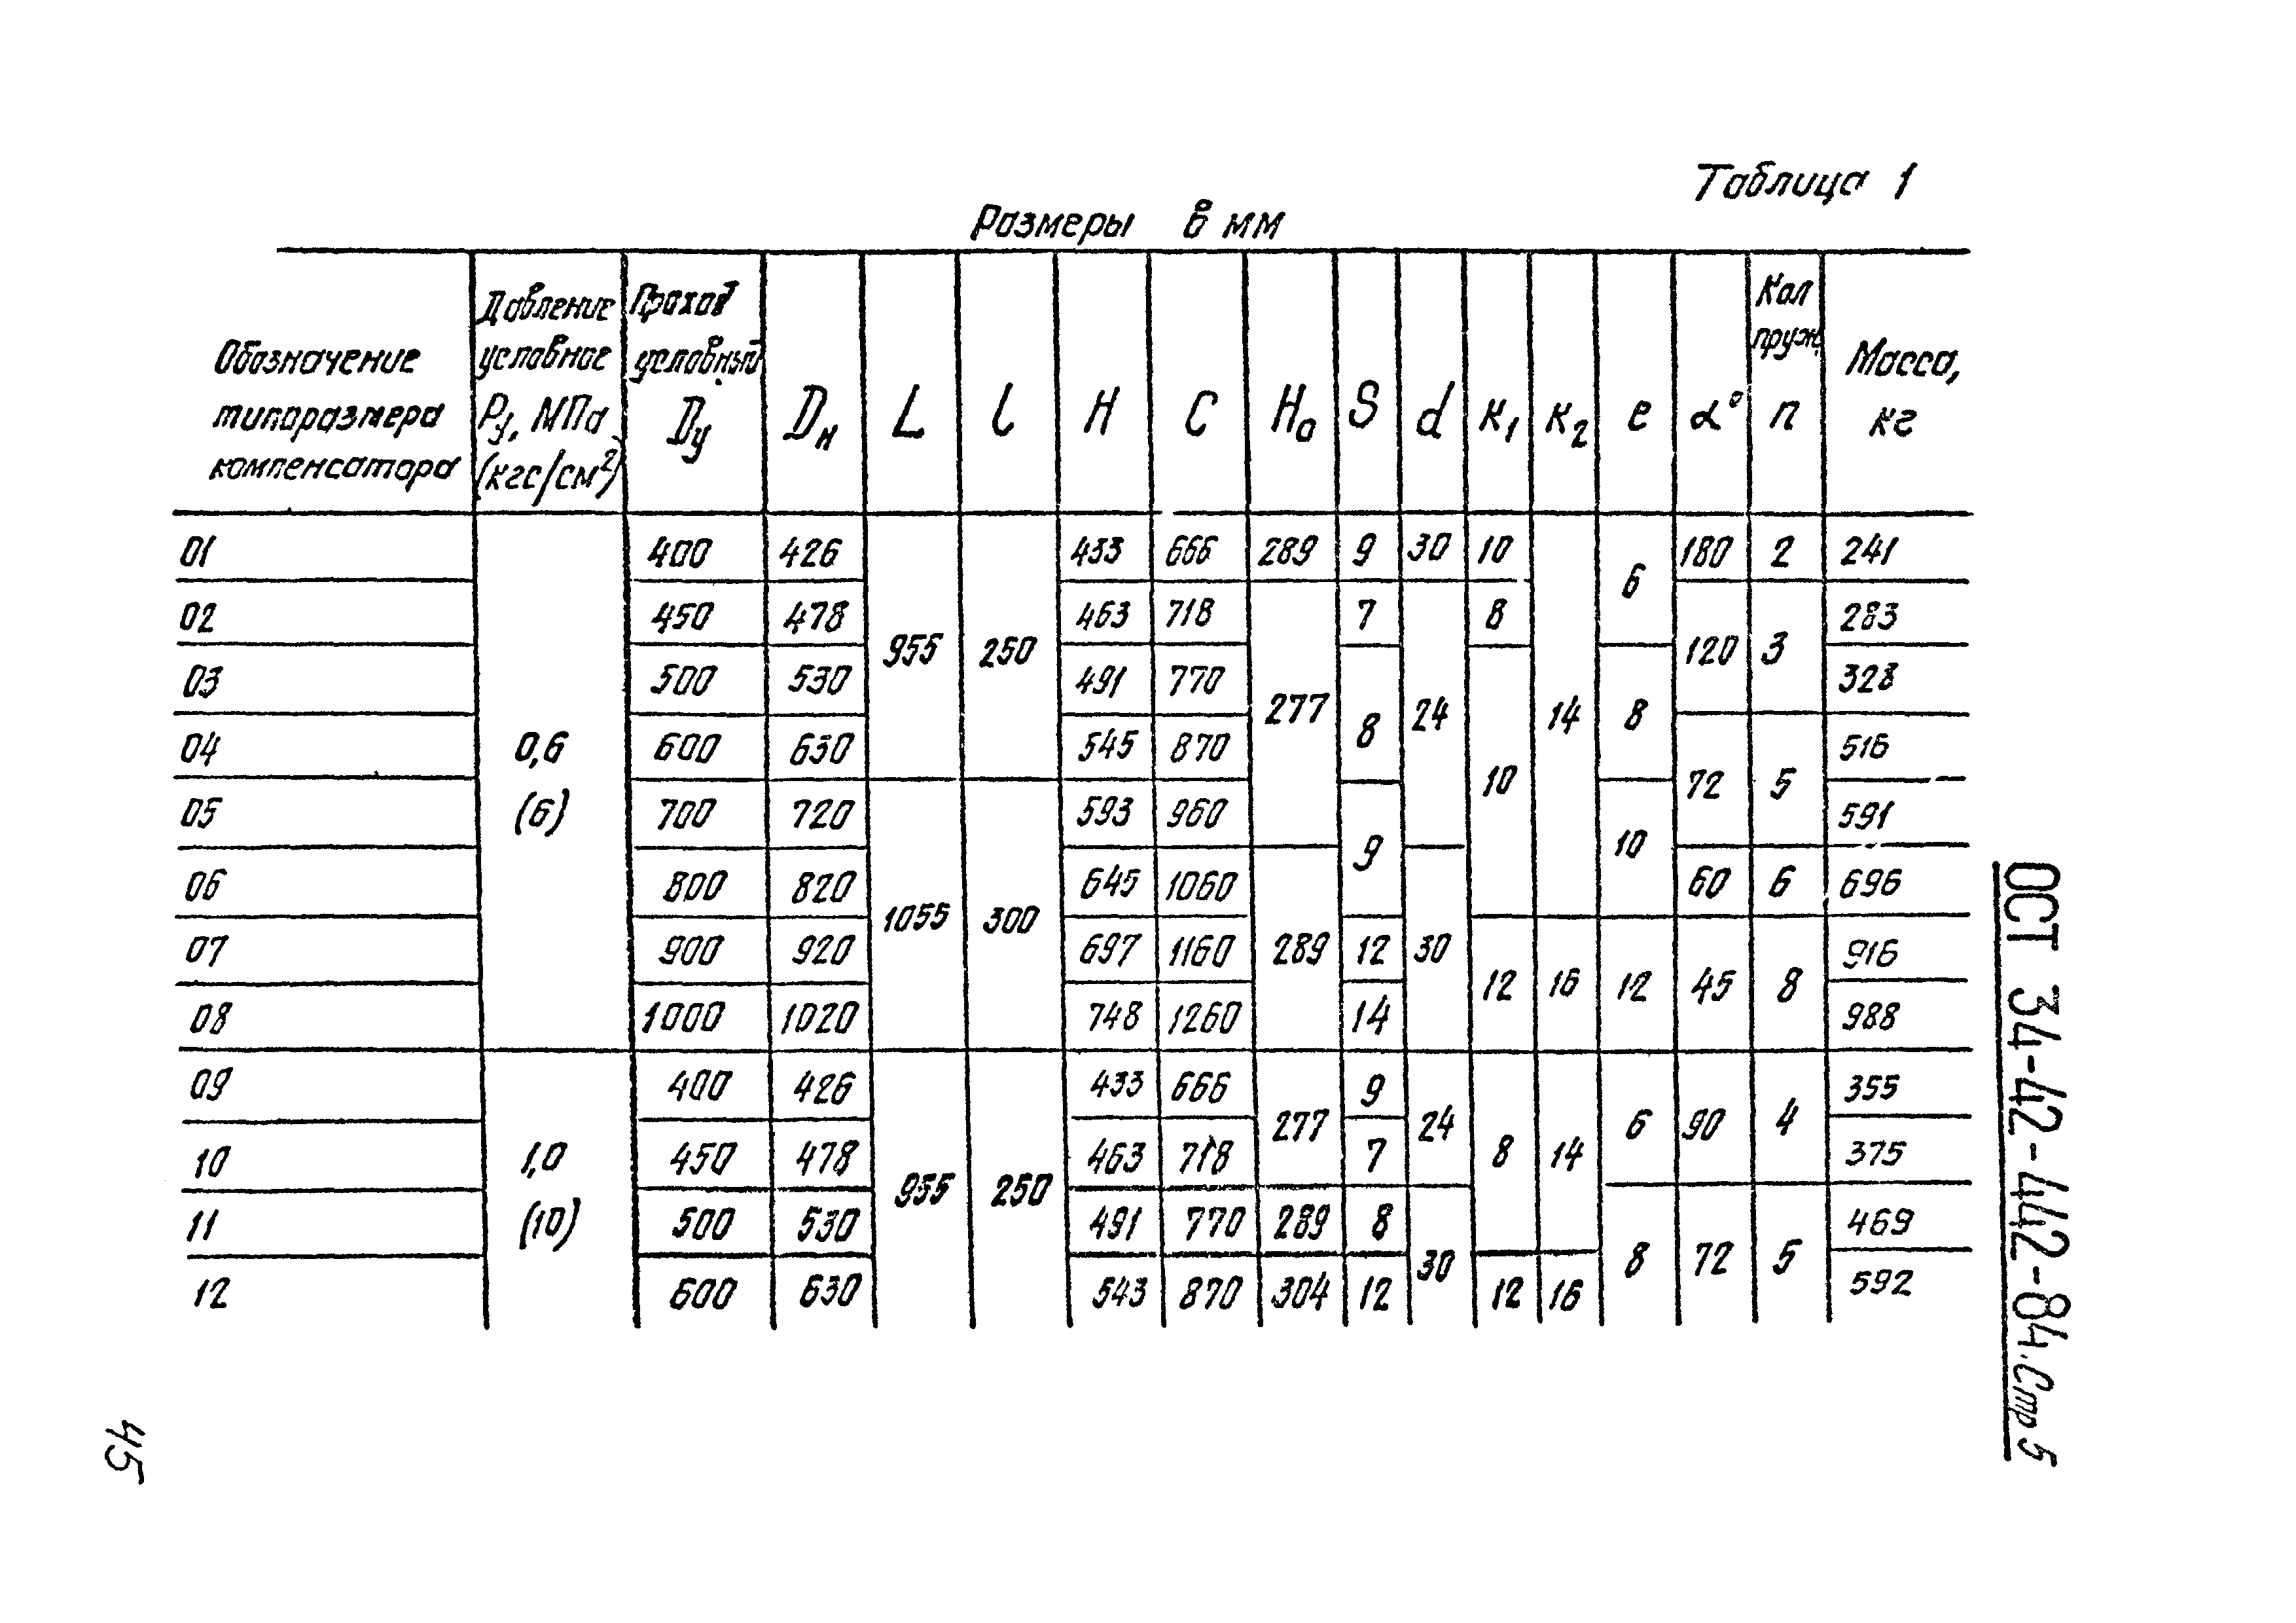 Таблица 1
Размеры в мм
Обозначение типоразмера компенсатора | Давление условное Pу, МПа (кгс/см²) | Проход условный Dу | Dн | L | l | H | C | H₀ | S | d | к₁ | к₂ | e | α° | Кол пруж. n | Масса, кг
01 | 0,6 (6) | 400 | 426 | 955 | 250 | 433 | 666 | 289 | 9 | 30 | 10 | 14 | 6 | 180 | 2 | 241
02 | 450 | 478 | 463 | 718 | 277 | 7 | 24 | 8 | 120 | 3 | 283
03 | 500 | 530 | 491 | 770 | 8 | 10 | 8 | 328
04 | 600 | 630 | 545 | 870 | 72 | 5 | 516
05 | 700 | 720 | 1055 | 300 | 593 | 960 | 9 | 10 | 591
06 | 800 | 820 | 645 | 1060 | 289 | 30 | 60 | 6 | 696
07 | 900 | 920 | 697 | 1160 | 12 | 12 | 16 | 12 | 45 | 8 | 916
08 | 1000 | 1020 | 748 | 1260 | 14 | 988
09 | 1,0 (10) | 400 | 426 | 955 | 250 | 433 | 666 | 277 | 9 | 24 | 8 | 14 | 6 | 90 | 4 | 355
10 | 450 | 478 | 463 | 718 | 7 | 375
11 | 500 | 530 | 491 | 770 | 289 | 8 | 30 | 8 | 72 | 5 | 469
12 | 600 | 630 | 543 | 870 | 304 | 12 | 12 | 16 | 592
ОСТ 34-42-442-84. Стр 5
45